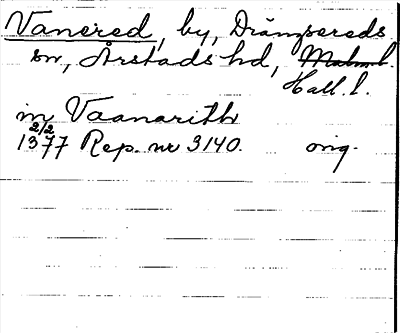 Vanered, by, Drängsereds
sn, Årstads hd, Malmh.
Hall. l.
in Vaanarith
2/2
1377 Rep. nr 3140. orig.